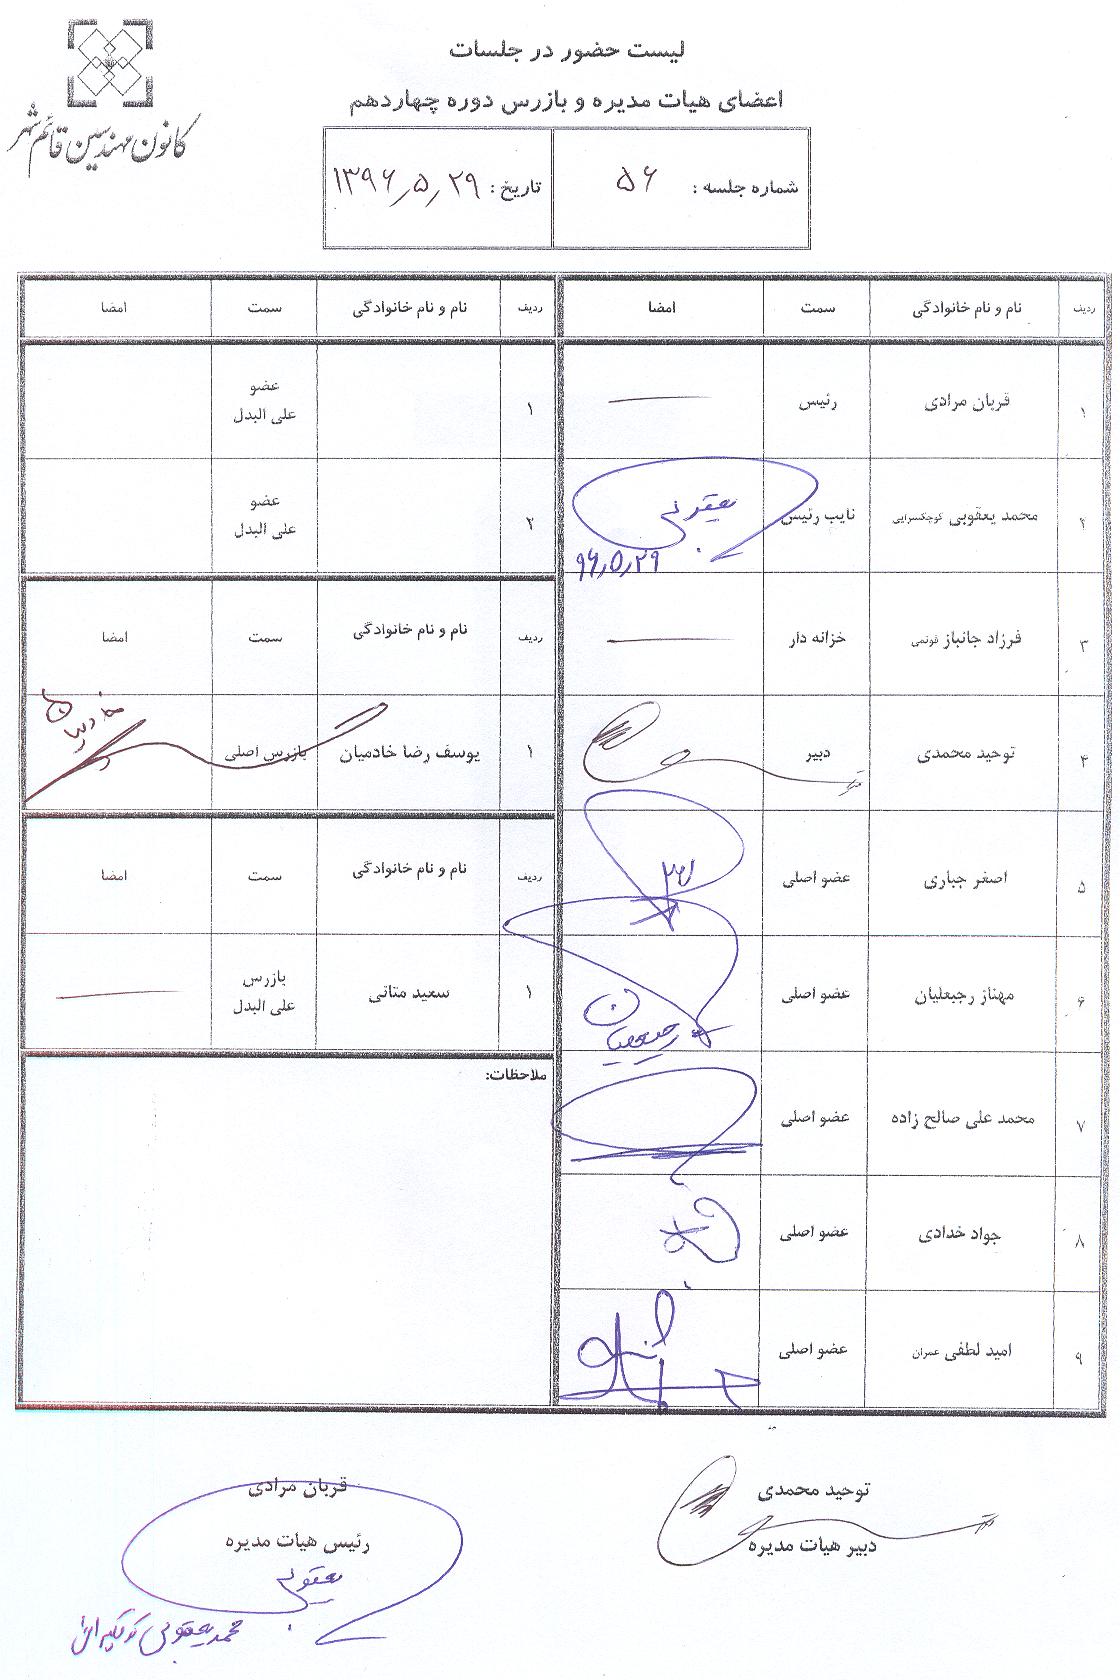 لیست حضور در جلسات
اعضای هیات مدیره و بازرس دوره چهاردهم
کانون مهندسین قائم شهر
شماره جلسه : ۵۶
تاریخ : ۱۳۹۶٫۵٫۲۹
ردیف نام و نام خانوادگی سمت امضا
۱ قربان مرادی رئیس
۲ محمد یعقوبی کوچکسرایی نایب رئیس یعقوبی
۹۶٫۵٫۲۹
۳ فرزاد جانباز خزانه دار
۴ توحید محمدی دبیر
۵ اصغر جباری عضو اصلی
۶ مهناز رجبعلیان عضو اصلی رجبعلیان
۷ محمد علی صالح زاده عضو اصلی
۸ جواد خدادی عضو اصلی
۹ امید لطفی عمران عضو اصلی
ردیف نام و نام خانوادگی سمت امضا
۱ عضو
علی البدل
۲ عضو
علی البدل
ردیف نام و نام خانوادگی سمت امضا
۱ یوسف رضا خادمیان بازرس اصلی خادمیان
ردیف نام و نام خانوادگی سمت امضا
۱ سعید متانی بازرس
علی البدل
ملاحظات:
توحید محمدی
دبیر هیات مدیره
قربان مرادی
رئیس هیات مدیره
یعقوبی
محمد یعقوبی